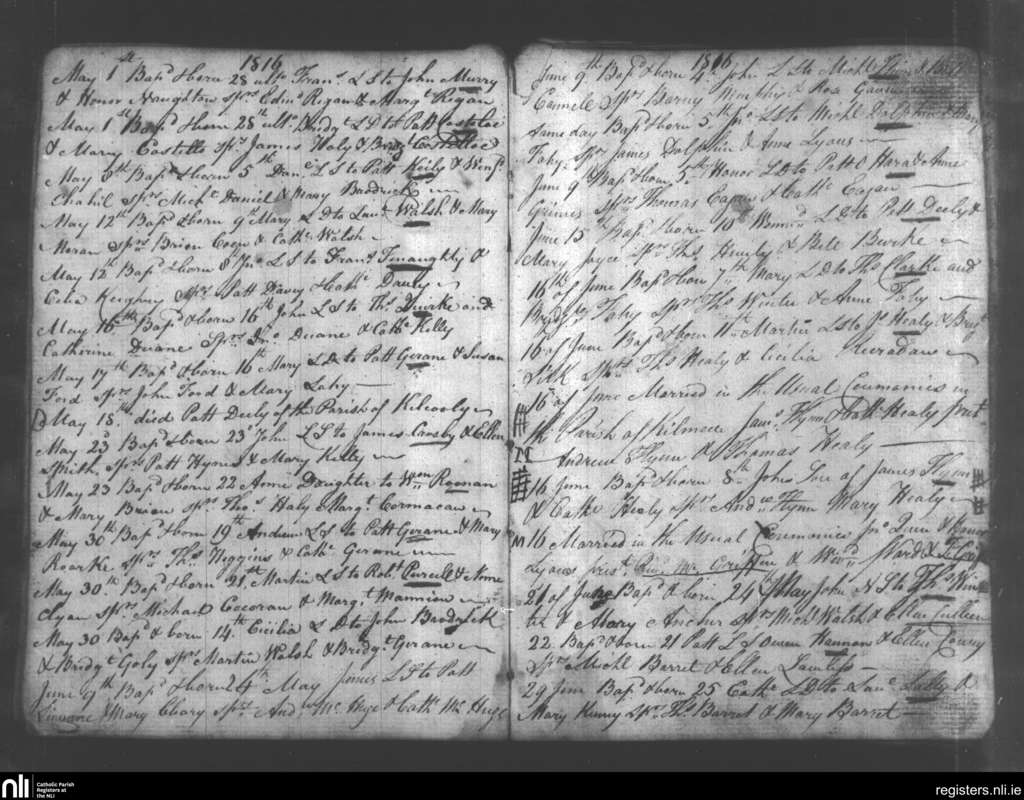 1816
May 1st Bapd & born 28 ulto Frans. L S to John Murry
& Honor Naughton Sprs Edmd Regan & Margt Regan
May 1st Bapd & born 28th ult. Bridgt L D to Patt Costeloe
& Mary Costello Sprs James Haly & Bridgt Costelloe
May 8th Bapd & born 5th Danl L S to Patt Keily & Winfd
Chahil Sprs Michl Daniel & Mary Brodrick
May 12th Bapd & born 9th Mary L D to Laur Walsh & Mary
Moran Sprs Brien Coen & Cathe Walsh
May 12th Bapd & born 8th Jno L S to Frans Finaughty &
Celia Keighry Sprs Patt Davey & Cathe Dauly
May 16th Bapd & born 16th John L S to Ths Burke and
Catherine Duane Sprs Jno Duane & Cathe Kelly
May 17th Bapd & born 16th Mary L D to Patt Gerane & Susan
Ford Sprs John Ford & Mary Lahy
May 18th died Patt Deely of the Parish of Kilcooly
May 23d Bapd & born 23d John L S to James & Ellen
Smith Sprs Patt Hynes & Mary Kelly
May 23 Bapd & born 22 Anne Daughter to Wm Roonan
& Mary Brien Sprs Thos Haly & Margt Cormacan
May 30th Bapd & born 19th Andrew L S to Patt Gerane & Mary
Roarke Sprs Ths Higgins & Cathe Gerane
May 30th Bapd & born 21st Martin L S to Robt Purcell & Nanne
Clyan Sprs Michael Corcoran & Margt Mannion
May 30 Bapd & born 14th Cicilia L D to John Broderick
& Bridgt Goly Sprs Martin Walsh & Bridgt Gerane
June 9th Bapd & born 24th May James L S to Patt
Linnane & Mary Cleary Sprs Andw Mc Huge & Cathe Mc Huge
1816
June 9th Bapd & born 4th John L S to Michl
Sprs Barny & Rose
Same day Bapd & born 5th Jno L S to Michl Dolphin & Mary
Fahy Sprs James Dolphin & Anne Lyons
June 9th Bapd & born 5th Honor L D to Patt O Hara & Anne
Grimes Sprs Thomas Eagan & Cathe Eagan
June 15th Bapd & born 10th L D to Patt Deely &
Mary Joyce Sprs Ths Hurly & Bell Burke
16th of June Bapd & born 7th Mary L D to Ths Clarke and
Bridgt Fahy Sprs Ths Winter & Anne Fahy
16 of June Bapd & born 11th Martin L S to Js Healy & Bridgt
Silk Sprs Ths Healy & Cicilia
16 of June Married in the Usual Ceremonies in
the Parish of Kilmeen Jams Flynn & Cath Healy prest.
Andrew Flynn & Thomas Healy
16 June Bapd & born 8th John Son of James Flynn
& Cathe Healy Sprs Andw Flynn Mary Healy
16 Married in the Usual Ceremonies Jno Quin & Honor
Lyons prest. & Widw Ward &
21 of June Bapd & born 24th May John N S to Ths
& Mary Sprs Mich Walsh & Ellen Cullen
22 Bapd & born 21 Patt L S Owen Hannon & Ellen
Sprs Michl Barret & Ellen Lawless
29 June Bapd & born 25 Cathe L D to Laue Lally &
Mary Kenny Sprs Ths Barret & Mary Barret
nli
Catholic Parish
Registers at
the NLI
registers.nli.ie